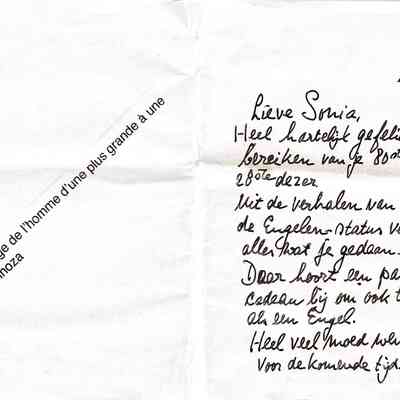 ge de l'homme d'une plus grande à une
noza
Lieve Sonia,
Heel hartelijk gefeli
bereiken van je 80ste
28ste dezer
Uit de verhalen van
de Engelen-status v
alles wat je gedaan
Daar hoort een pa
cadeau bij om ook t
als een Engel.
Heel veel moed
voor de komende tijd